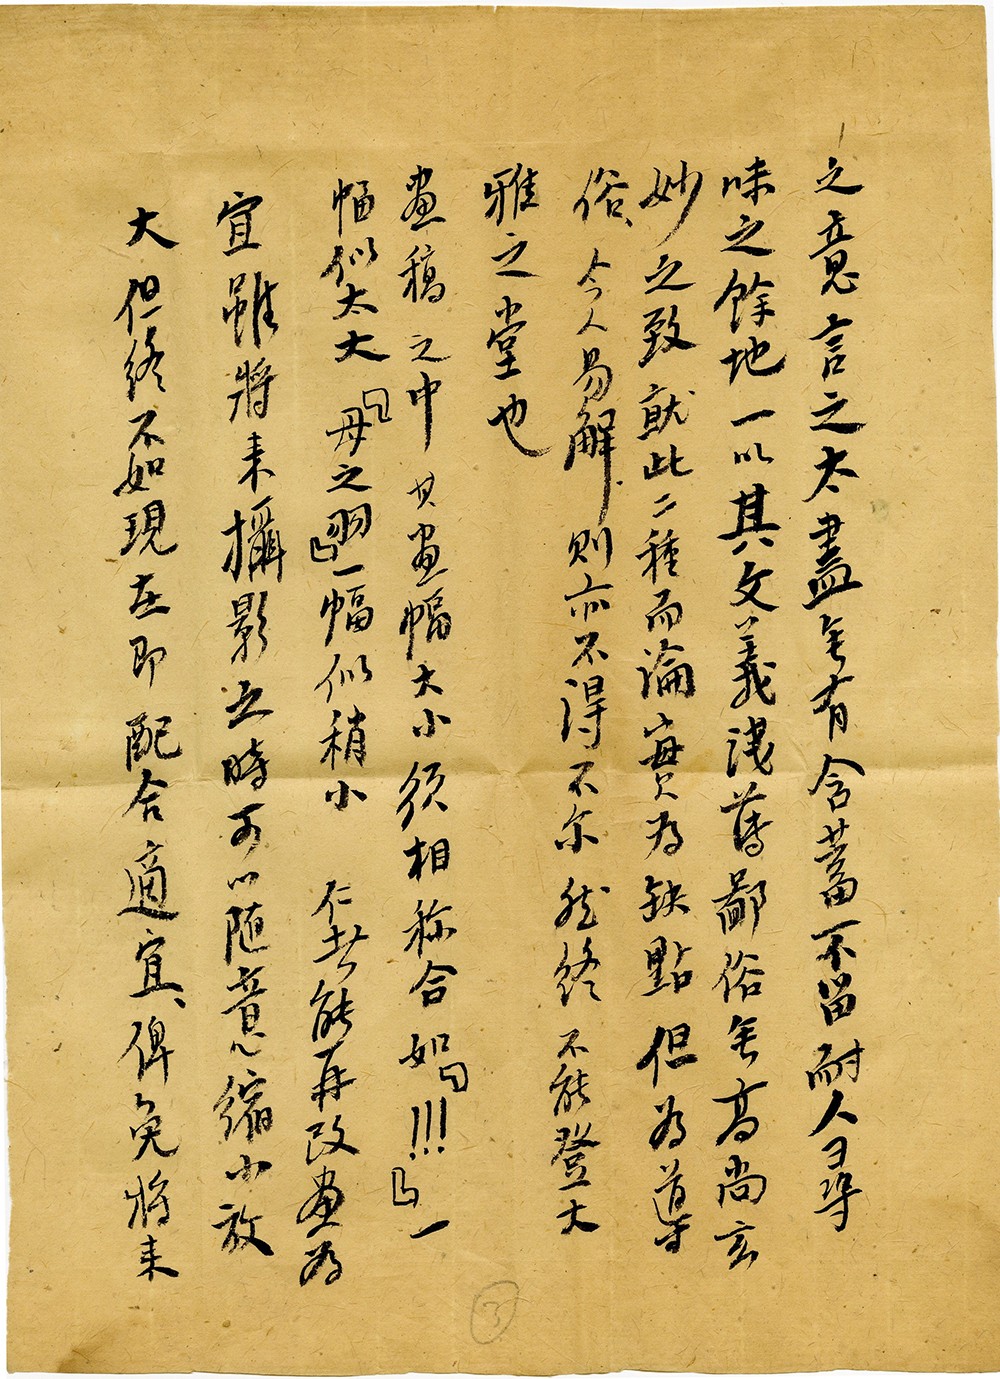 之意言之太盡無有含蓄不留耐人尋
味之餘地一以其文義淺薄鄙俗無高尚玄
妙之致就此二種而論實為缺點但為導
俗、令人易解則亦不得不尔然終不能登大
雅之堂也
畫稿之中其畫幅大小須相称合如「!!!」一
幅似太大「母之羽」一幅似稍小仁者能再改畫為
宜雖將来攝影之時可以随意縮小放
大但終不如現在即配合適宜、俾免將来
3